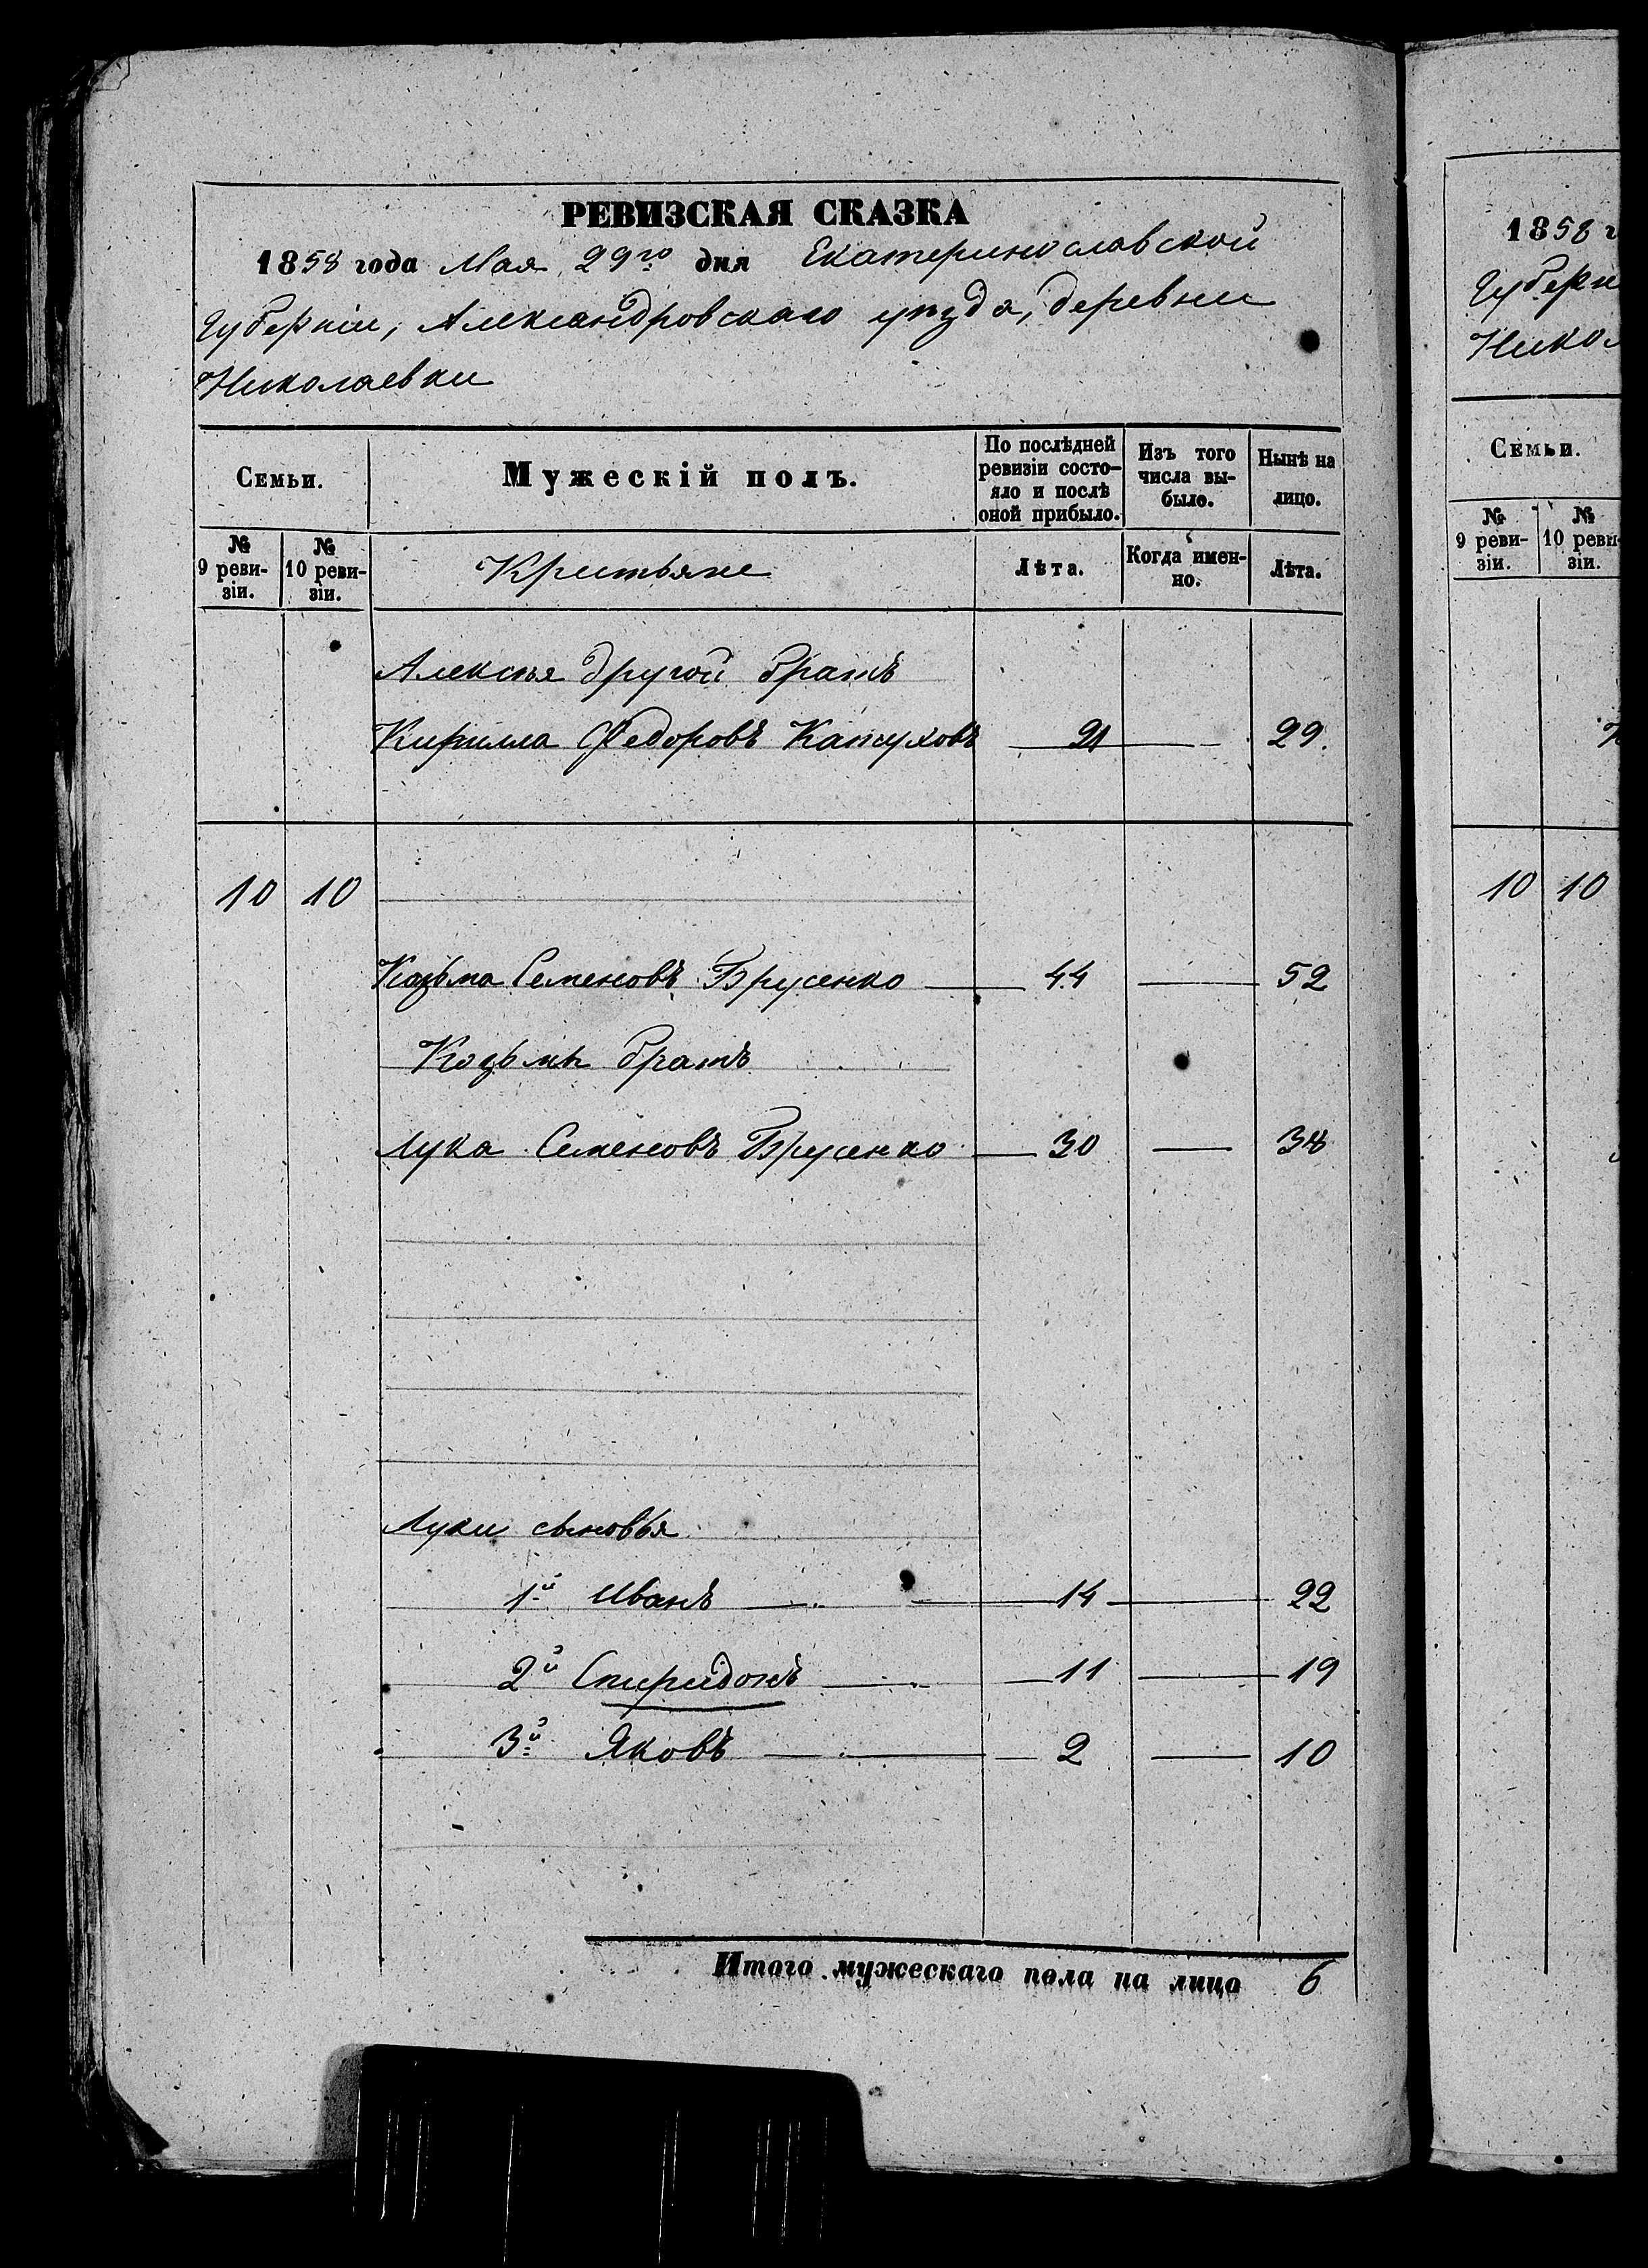 РЕВИЗСКАЯ СКАЗКА
1858 года Мая 29го дня Екатеринославской
Губерніи, Александровскаго уѣзда, деревни
Николаевки
Семьи.
Мужескій полъ.
По послѣдней ревизіи состо-
яло и послѣ
оной прибыло.
Изъ того
числа вы-
было.
Нынѣ на
лицо.
№
9 реви-
зіи.
№
10 реви-
зіи.
Крестьяне
Лѣта.
Когда имен-
но.
Лѣта.
Алексѣя другой братъ
Кирилла Федоровъ 21 29.
10 10
Козьма Семеновъ Брусенко 44 52
Козьмы братъ
Лука Семеновъ Брусенко 30 38
Луки сыновья
1й Иванъ 14 22
2й Спиридонъ 11 19
3й Яковъ 2 10
Итого мужескаго пола на лицо 6
1858 г
Губерн
Никол
Семьи.
№
9 реви-
зіи.
№
10 реви-
зіи.
10 10